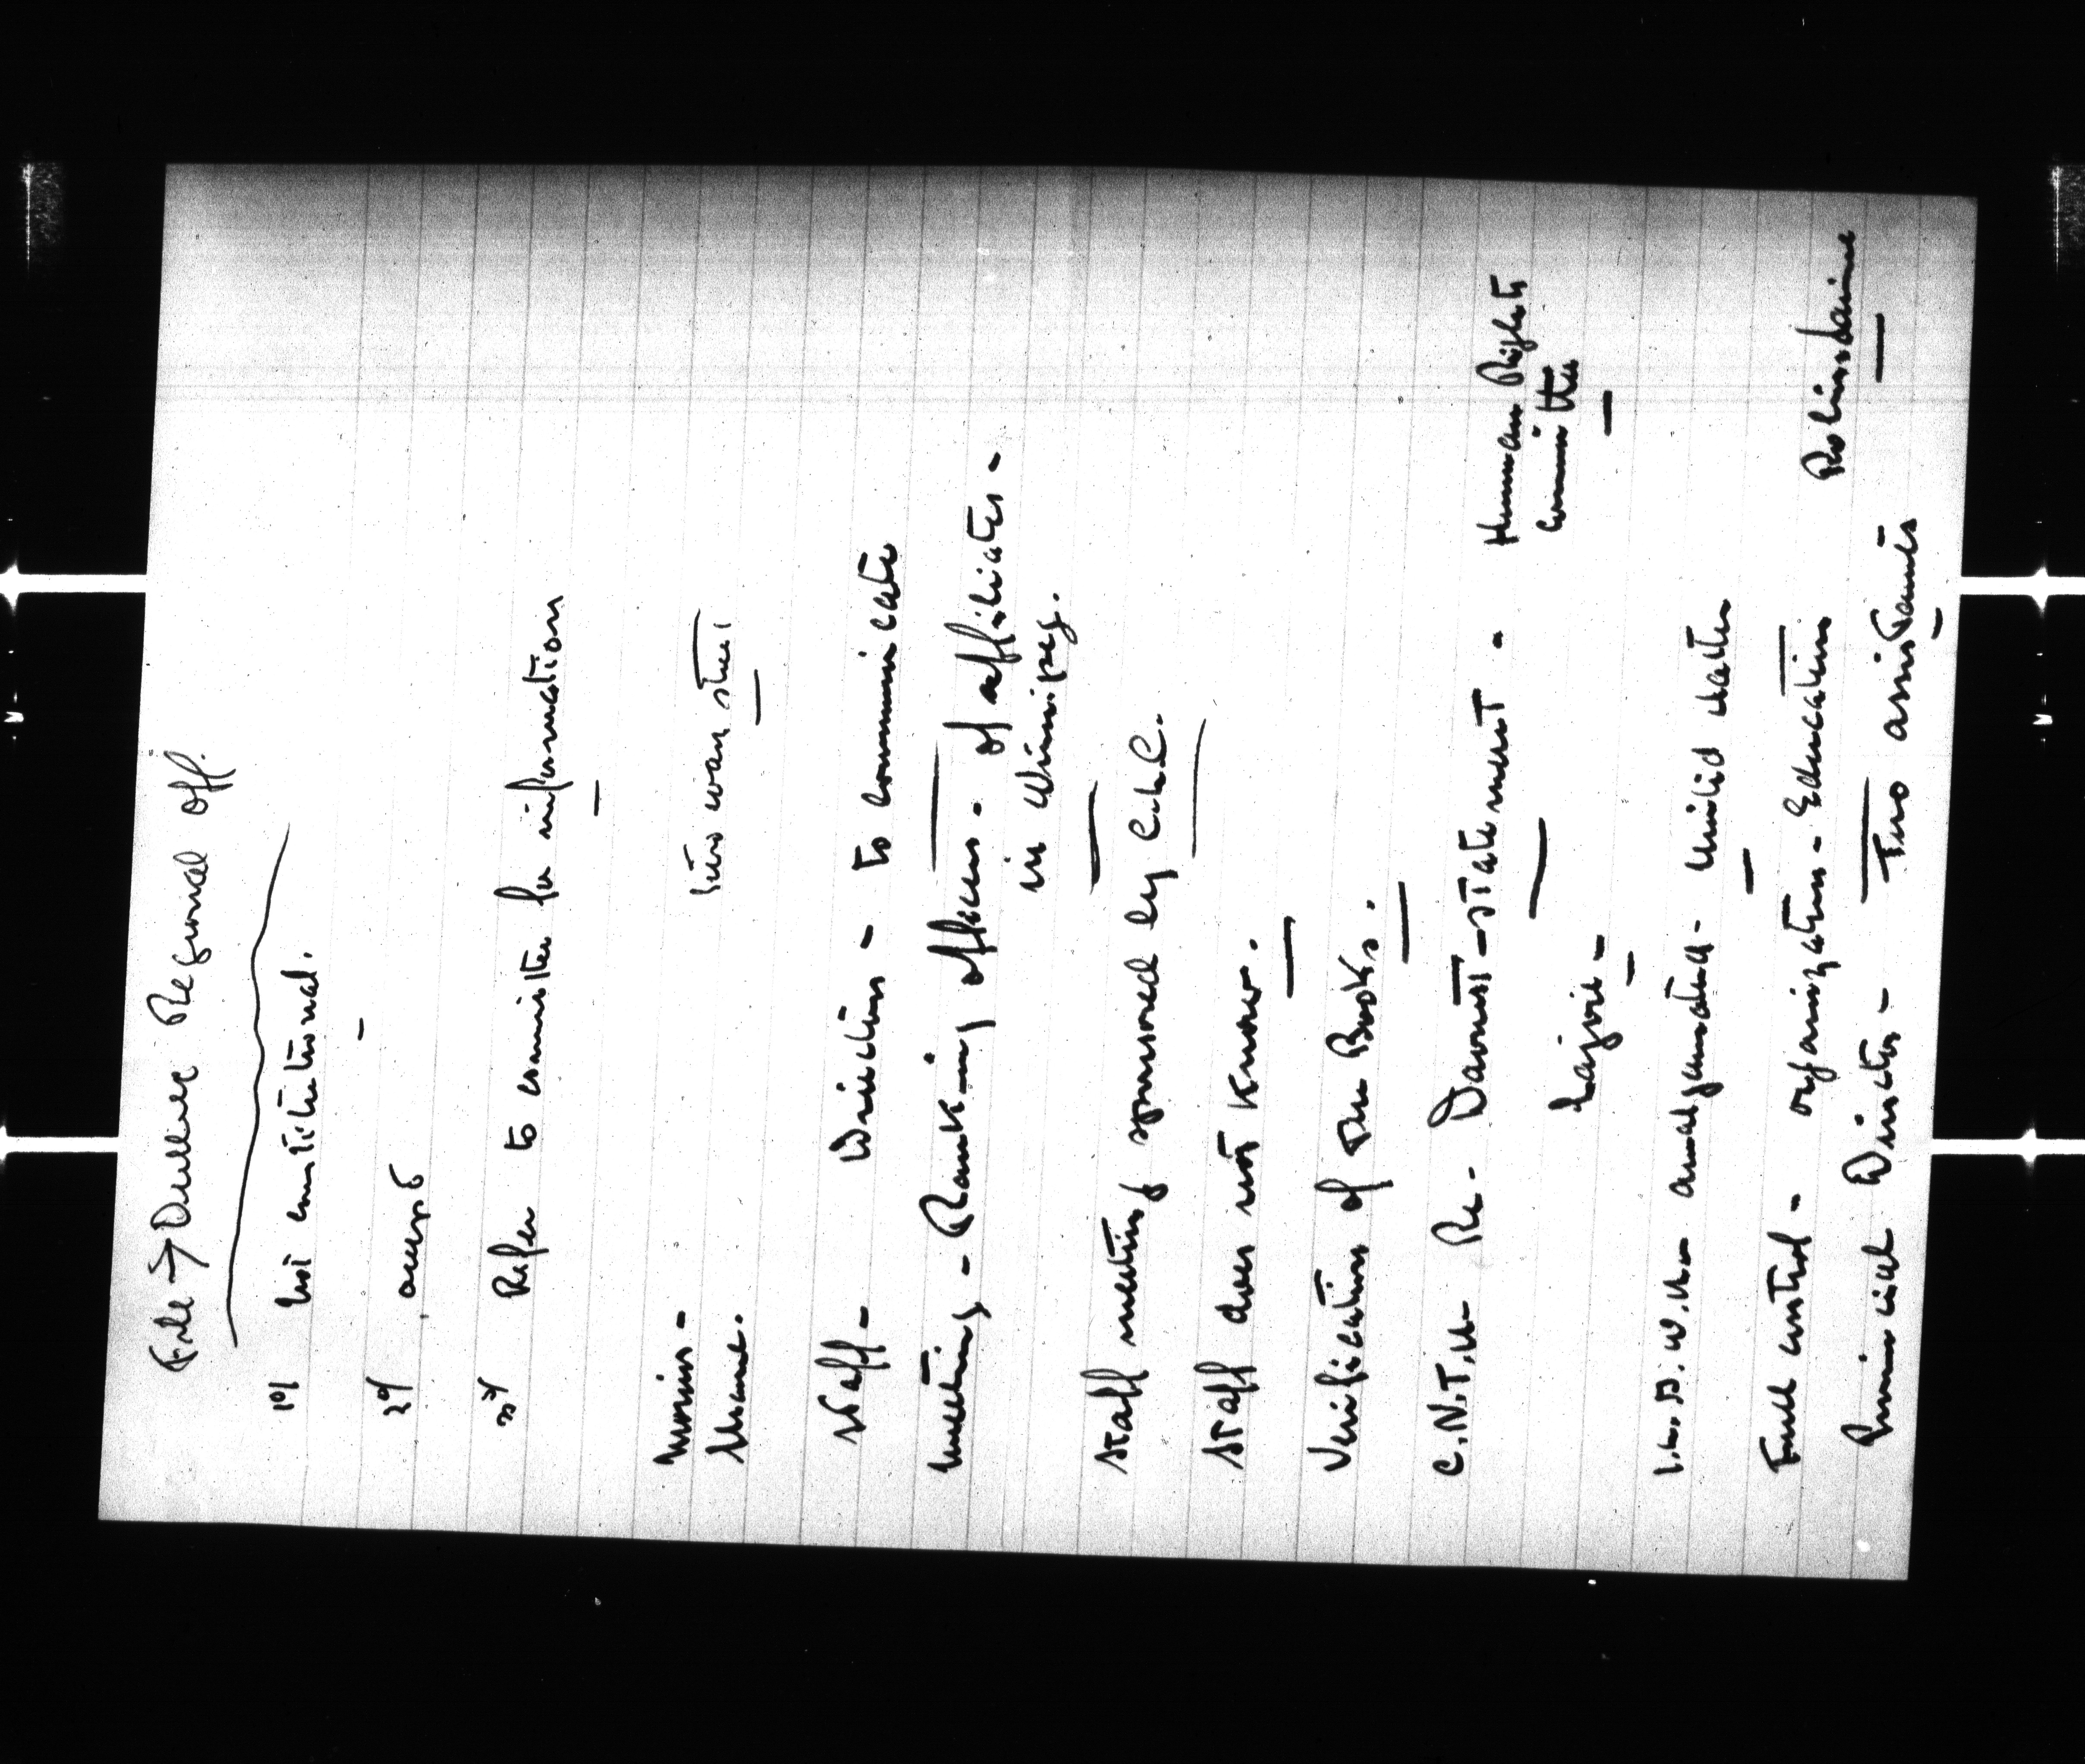 File → Regional Off.
1º/ constitutional.
2º/ accept
3º/ Refer to committee for information
Morris -
two wan steel
Staff - Direction - to communicate
meeting - Ranking officers - of affiliates -
in Winnipeg.
Staff meeting sponsored by C.L.C.
Staff does not know.
Verification of the Books.
C.N.T.U. Re - statement - Human Rights
Committee
Lajoie -
amalgamated - United
Full control - organization - Education
Robinsdaine
Provincial Director - Two assistants